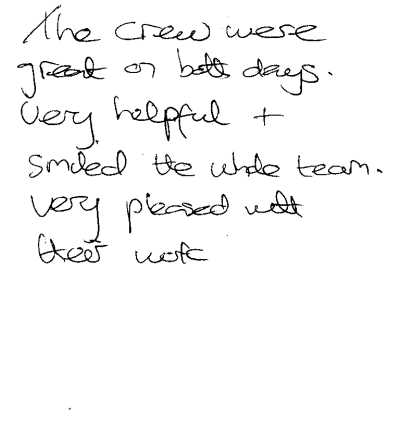 The crew were
great on both days.
Very helpful +
smiled the whole team.
Very pleased with
their work